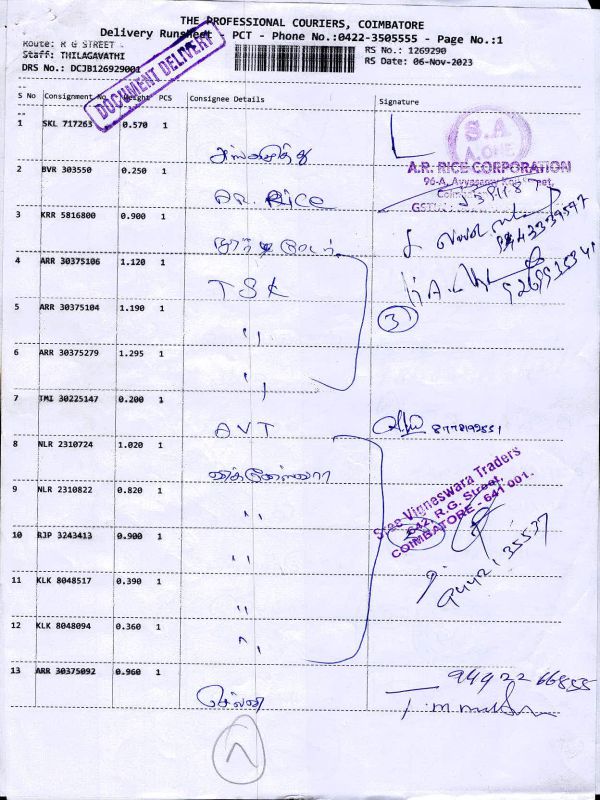 THE PROFESSIONAL COURIERS, COIMBATORE
Delivery Runsheet - PCT - Phone No.:0422-3505555 - Page No.:1
Route: R G STREET -
Staff: THILAGAVATHI
DRS No.: DCJB126929001
RS No.: 1269290
RS Date: 06-Nov-2023
DOCUMENT DELIVERY
S No Consignment No Weight PCS Consignee Details Signature
1 SKL 717263 0.570 1
S.A
A.ONE
2 BVR 303550 0.250 1 A.R. Rice
A.R. RICE CORPORATION
3 KRR 5816800 0.900 1
4 ARR 30375106 1.120 1 TSK
3
5 ARR 30375104 1.190 1 ,,
6 ARR 30375279 1.295 1 ,,
7 TMI 30225147 0.200 1 AVT
8 NLR 2310724 1.020 1
Sree Vigneswara Traders
642, R.G. Street,
COIMBATORE - 641 001.
9 NLR 2310822 0.820 1 ,,
10 RJP 3243413 0.900 1 ,,
11 KLK 8048517 0.390 1 ,,
12 KLK 8048094 0.360 1 ,,
13 ARR 30375092 0.960 1